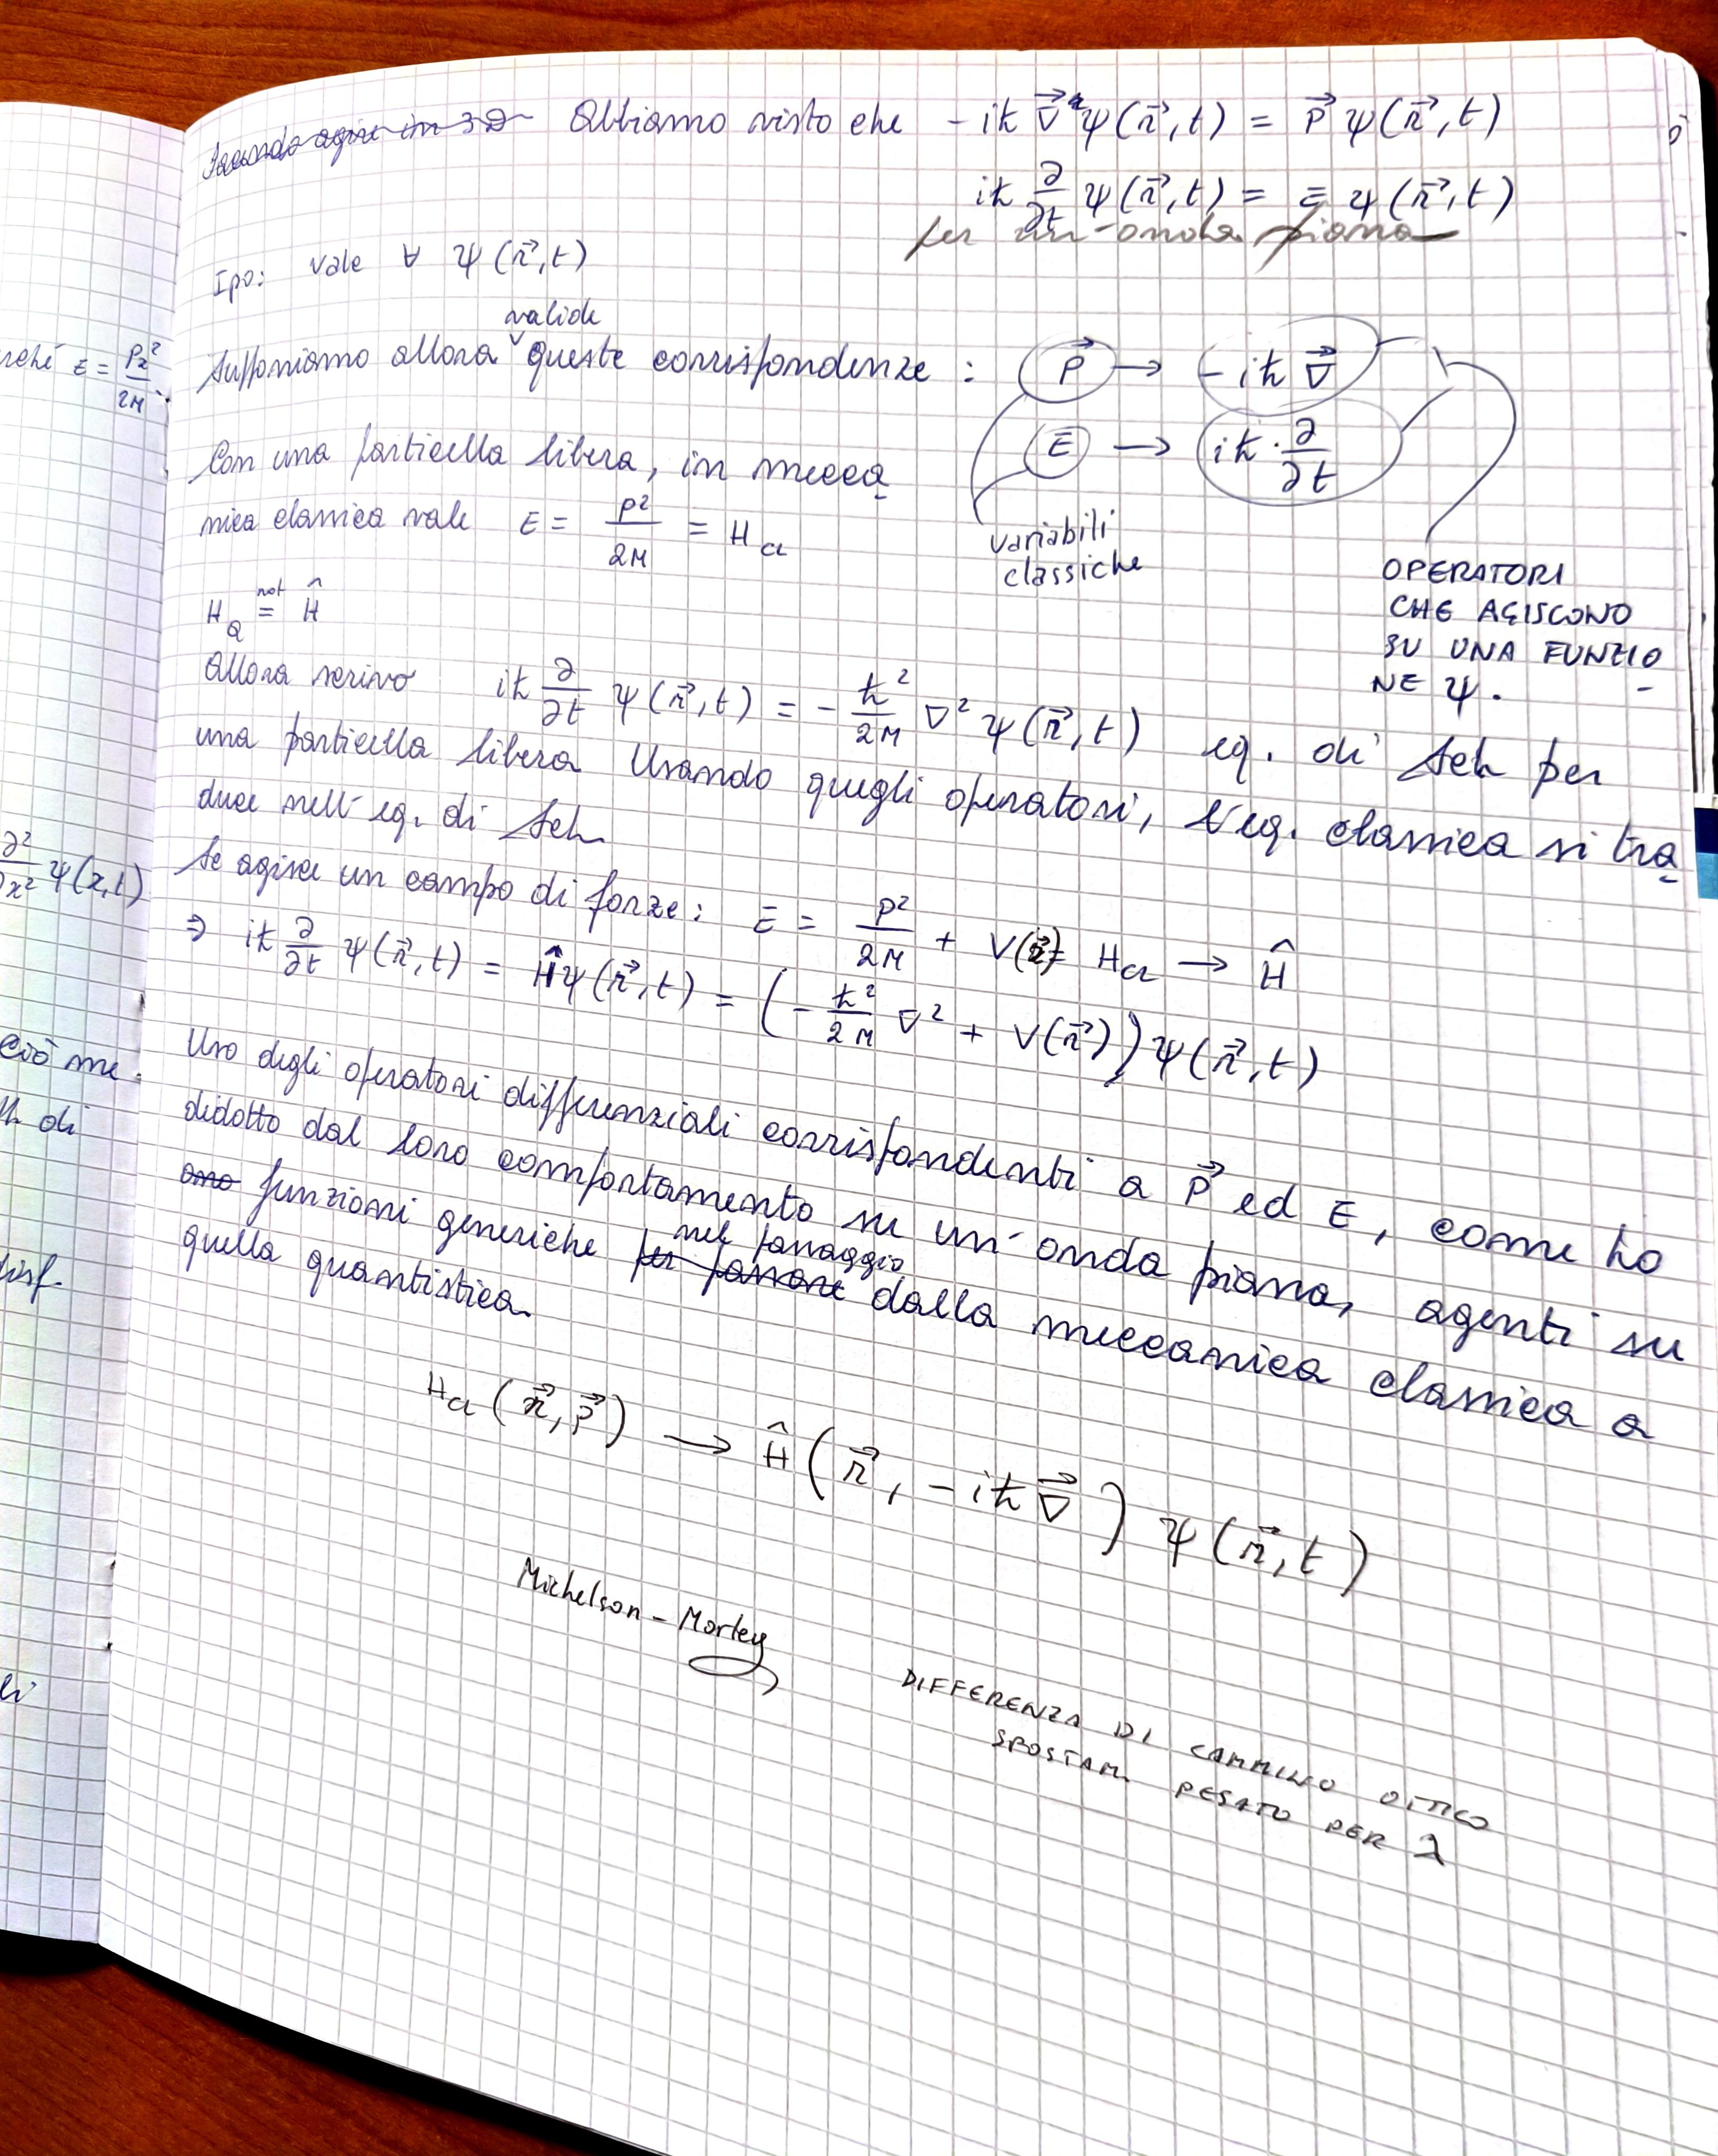 Facendo agire in 3D Abbiamo visto che -iħ ∇⃗ ψ(r⃗,t) = p⃗ ψ(r⃗,t)
iħ ∂/∂t ψ(r⃗,t) = E ψ(r⃗,t)
per un'onda piana
Ipo: vale ∀ ψ(r⃗,t)
valide
Supponiamo allora queste corrispondenze : p⃗ → -iħ ∇⃗
E → iħ · ∂/∂t
variabili
classiche
OPERATORI
CHE AGISCONO
SU UNA FUNZIO
NE ψ.
Con una particella libera, in mecca
nica classica vale E = p²/2M = H cl
H Q = not Ĥ
Allora scrivo iħ ∂/∂t ψ(r⃗,t) = - ħ²/2M ∇² ψ(r⃗,t) eq. di Sch per
una particella libera Usando quegli operatori, l'eq. classica si tra
duce nell'eq. di Sch
Se agisce un campo di forze: E = p²/2M + V(r⃗) = H cl → Ĥ
⇒ iħ ∂/∂t ψ(r⃗,t) = Ĥψ(r⃗,t) = (- ħ²/2M ∇² + V(r⃗)) ψ(r⃗,t)
Uso degli operatori differenziali corrispondenti a p⃗ ed E, come ho
dedotto dal loro comportamento su un'onda piana, agenti su
funzioni generiche per passare nel passaggio dalla meccanica classica a
quella quantistica.
H cl (r⃗, p⃗) → Ĥ (r⃗, -iħ ∇⃗) ψ(r⃗,t)
Michelson - Morley
DIFFERENZA DI CAMMINO OTTICO
SPOSTAM. PESATO PER λ
rché E = Px²/2M
∂²/∂x² ψ(x,t)
Ciò me
di